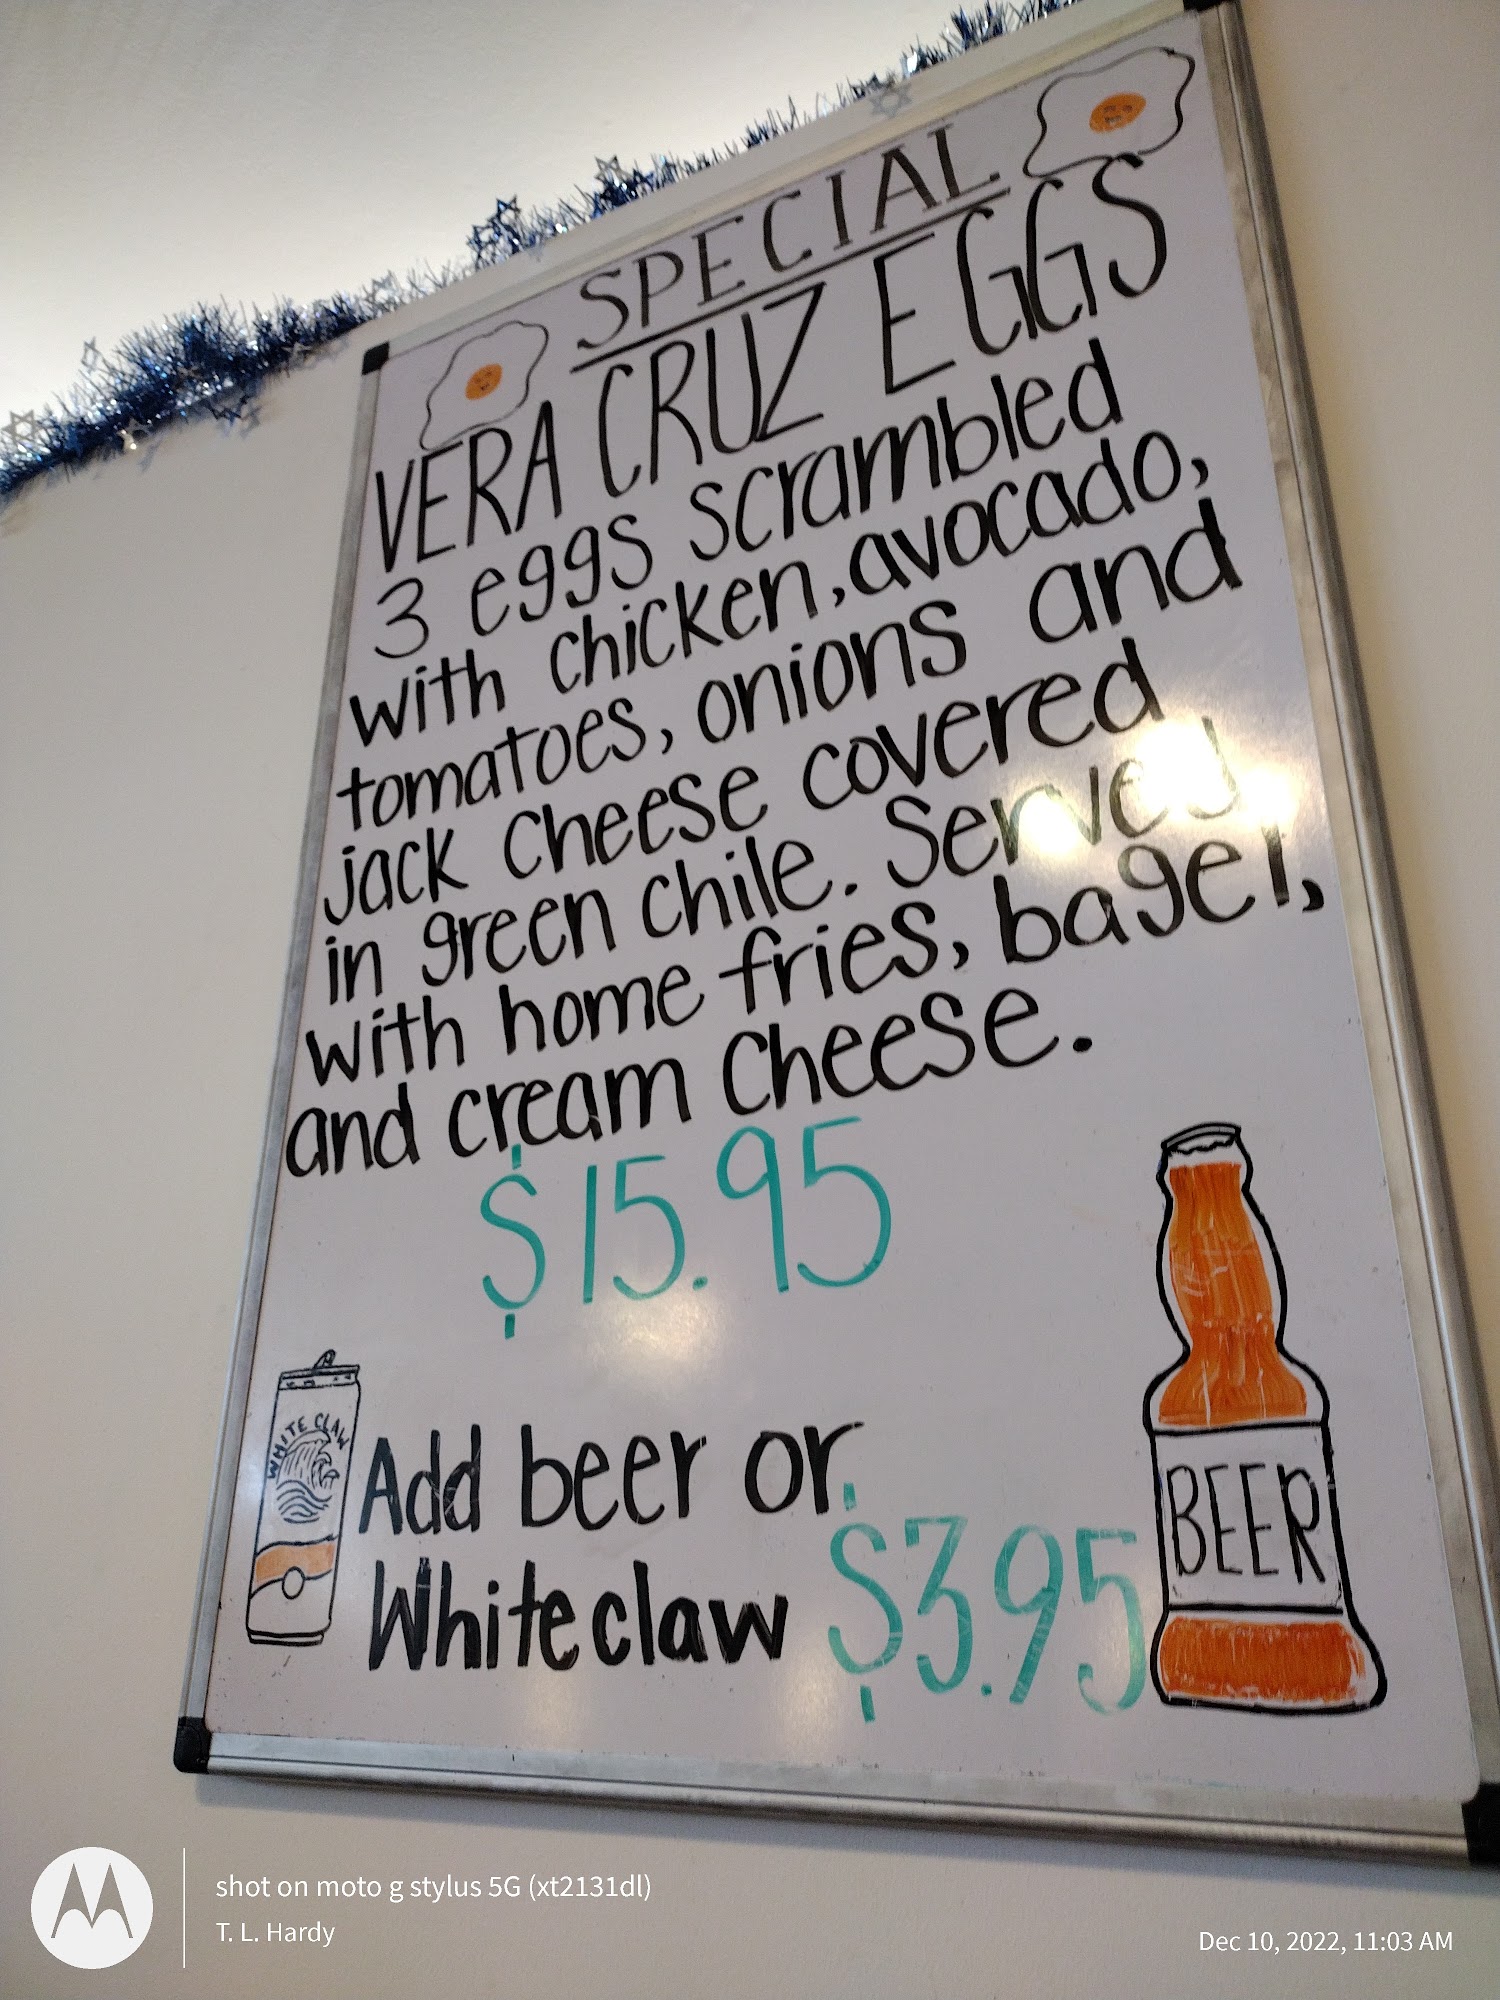 SPECIAL
VERA CRUZ EGGS
3 eggs scrambled
with chicken, avocado,
tomatoes, onions and
jack cheese covered
in green chile. Served
with home fries, bagel,
and cream cheese.
$15.95
WHITE CLAW
Add beer or
Whiteclaw $3.95
BEER
shot on moto g stylus 5G (xt2131dl)
T. L. Hardy
Dec 10, 2022, 11:03 AM